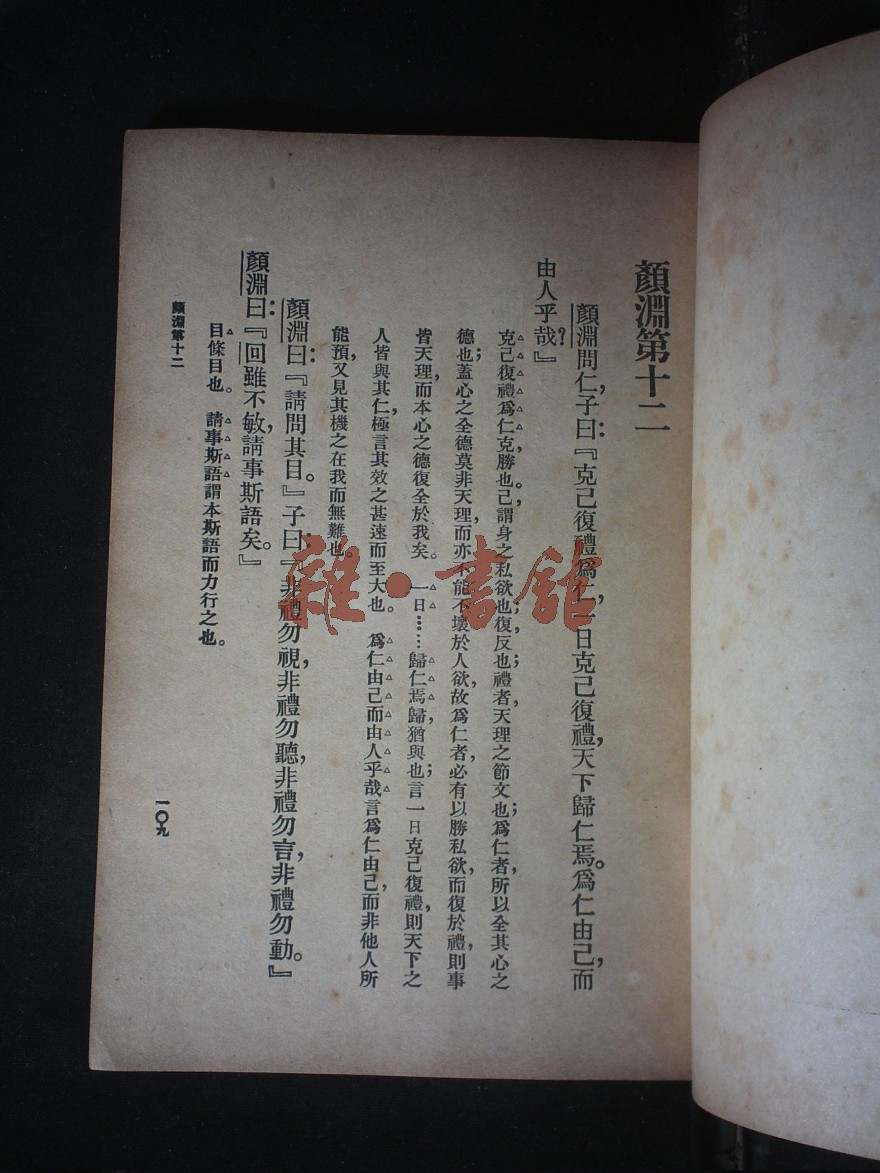 顏淵第十二
顏淵問仁,子曰:『克己復禮爲仁,一日克己復禮,天下歸仁焉。爲仁由己,而
由人乎哉?』
克己復禮爲仁克勝也。己,謂身之私欲也;復,反也;禮者,天理之節文也;爲仁者,所以全其心之
德也;蓋心之全德莫非天理,而亦不能不壞於人欲,故爲仁者,必有以勝私欲,而復於禮,則事
皆天理,而本心之德復全於我矣。 一日……歸仁焉歸,猶與也;言一日克己復禮,則天下之
人皆與其仁,極言其效之甚速而至大也。 爲仁由己而由人乎哉言爲仁由己,而非他人所
能預,又見其機之在我而無難也。
顏淵曰:『請問其目。』子曰:『非禮勿視,非禮勿聽,非禮勿言,非禮勿動。』
顏淵曰:『回雖不敏,請事斯語矣。』
目條目也。 請事斯語謂本斯語而力行之也。
顏淵第十二
一〇九
雜·書館